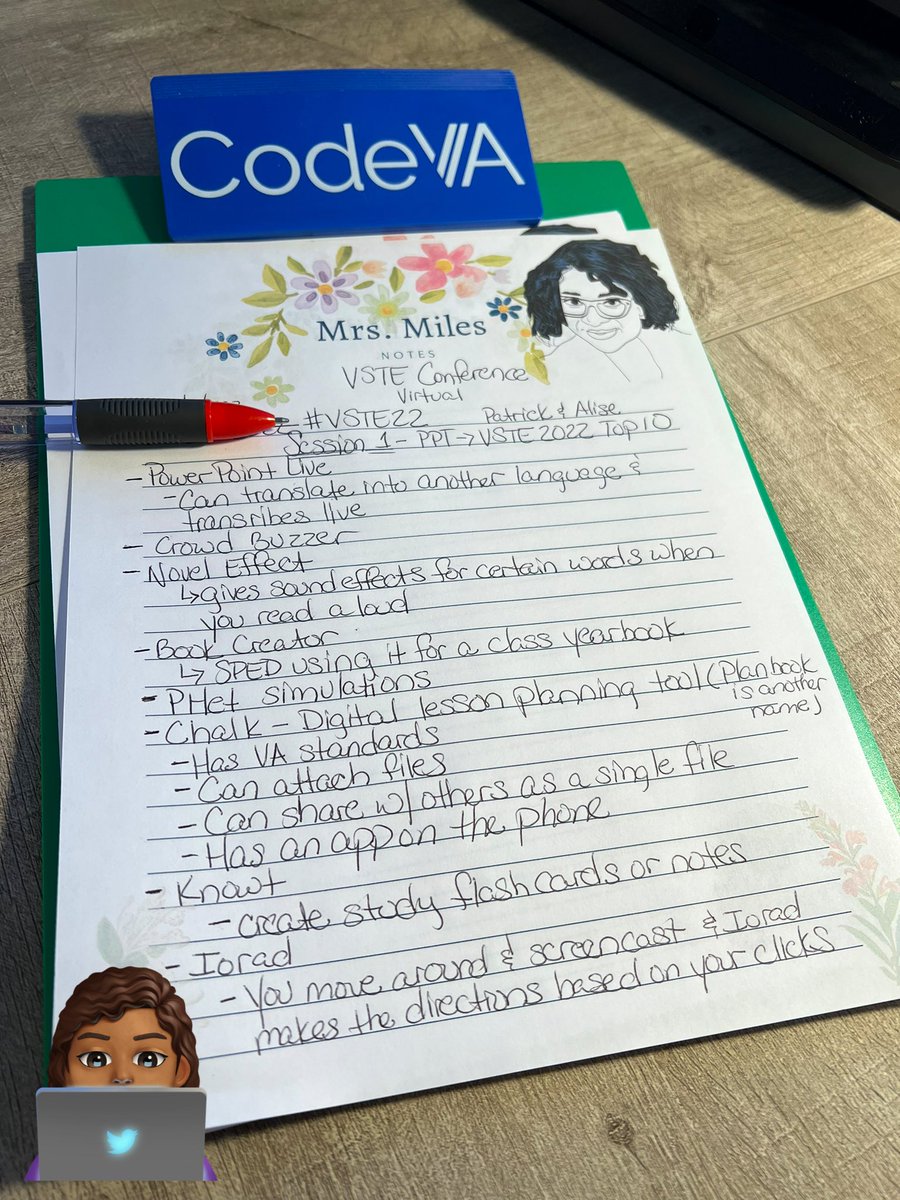 CodeVA
Mrs. Miles
NOTES
VSTE Conference
Virtual
#VSTE22 Patrick & Alise
Session 1 - PPT → VSTE 2022 Top 10
- PowerPoint Live
- Can translate into another language &
transribes live
- Crowd Buzzer
- Novel Effect
↳ gives sound effects for certain words when
you read a loud
- Book Creator
↳ SPED using it for a class yearbook
- PHet simulations
- Chalk - Digital lesson planning tool (Planbook
is another
name)
- Has VA standards
- Can attach files
- Can share w/ others as a single file
- Has an app on the phone
- Knowt
- create study flash cards or notes
- Iorad
- You move around & screencast & Iorad
makes the directions based on your clicks